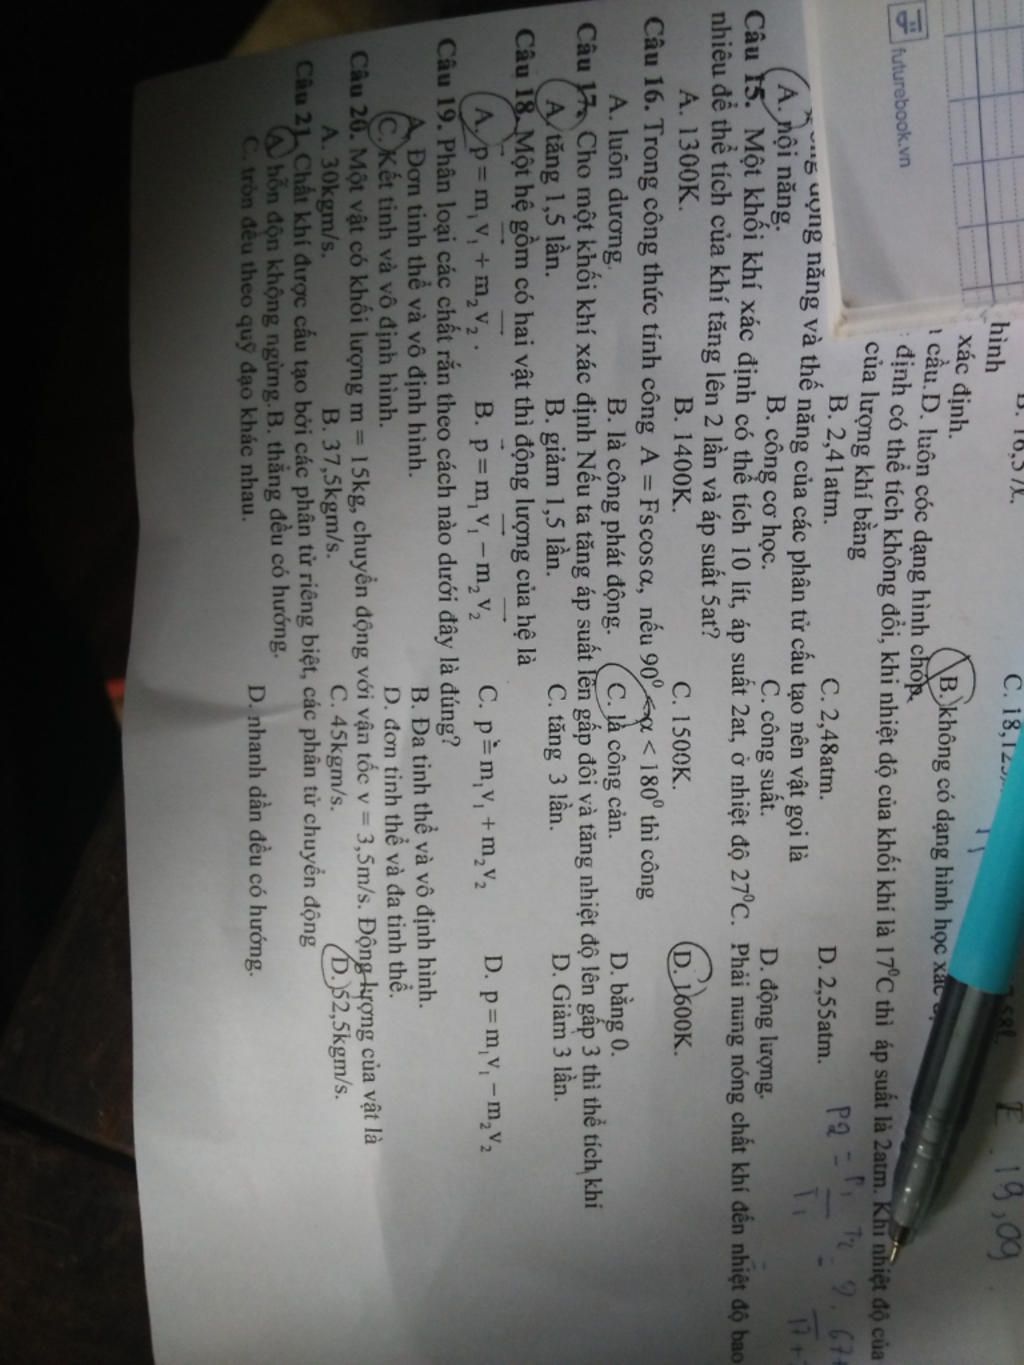 B. 16,5 lít. C. 18,125
hình
xác định. B. không có dạng hình học xác
cầu. D. luôn cóc dạng hình chóp
định có thể tích không đổi, khi nhiệt độ của khối khí là 17⁰C thì áp suất là 2atm. Khi nhiệt độ của
của lượng khí bằng
B. 2,41atm. C. 2,48atm. D. 2,55atm.
động năng và thế năng của các phân tử cấu tạo nên vật gọi là
A. nội năng. B. công cơ học. C. công suất. D. động lượng.
Câu 15. Một khối khí xác định có thể tích 10 lít, áp suất 2at, ở nhiệt độ 27⁰C. Phải nung nóng chất khí đến nhiệt độ bao
nhiêu để thể tích của khí tăng lên 2 lần và áp suất 5at?
A. 1300K. B. 1400K. C. 1500K. D. 1600K.
Câu 16. Trong công thức tính công A = Fscosα, nếu 90⁰ < α < 180⁰ thì công
A. luôn dương. B. là công phát động. C. là công cản. D. bằng 0.
Câu 17. Cho một khối khí xác định Nếu ta tăng áp suất lên gấp đôi và tăng nhiệt độ lên gấp 3 thì thể tích khí
A. tăng 1,5 lần. B. giảm 1,5 lần. C. tăng 3 lần. D. Giảm 3 lần.
Câu 18. Một hệ gồm có hai vật thì động lượng của hệ là
A. p = m₁v₁ + m₂v₂. B. p = m₁v₁ − m₂v₂ C. p = m₁v₁ + m₂v₂ D. p = m₁v₁ − m₂v₂
Câu 19. Phân loại các chất rắn theo cách nào dưới đây là đúng?
A. Đơn tinh thể và vô định hình. B. Đa tinh thể và vô định hình.
C. Kết tinh và vô định hình. D. đơn tinh thể và đa tinh thể.
Câu 20. Một vật có khối lượng m = 15kg, chuyển động với vận tốc v = 3,5m/s. Động lượng của vật là
A. 30kgm/s. B. 37,5kgm/s. C. 45kgm/s. D. 52,5kgm/s.
Câu 21. Chất khí được cấu tạo bởi các phân tử riêng biệt, các phân tử chuyển động
A. hỗn độn không ngừng. B. thẳng đều có hướng.
C. tròn đều theo quỹ đạo khác nhau. D. nhanh dần đều có hướng.
futurebook.vn
19,09
P2 = P1 T2
T1